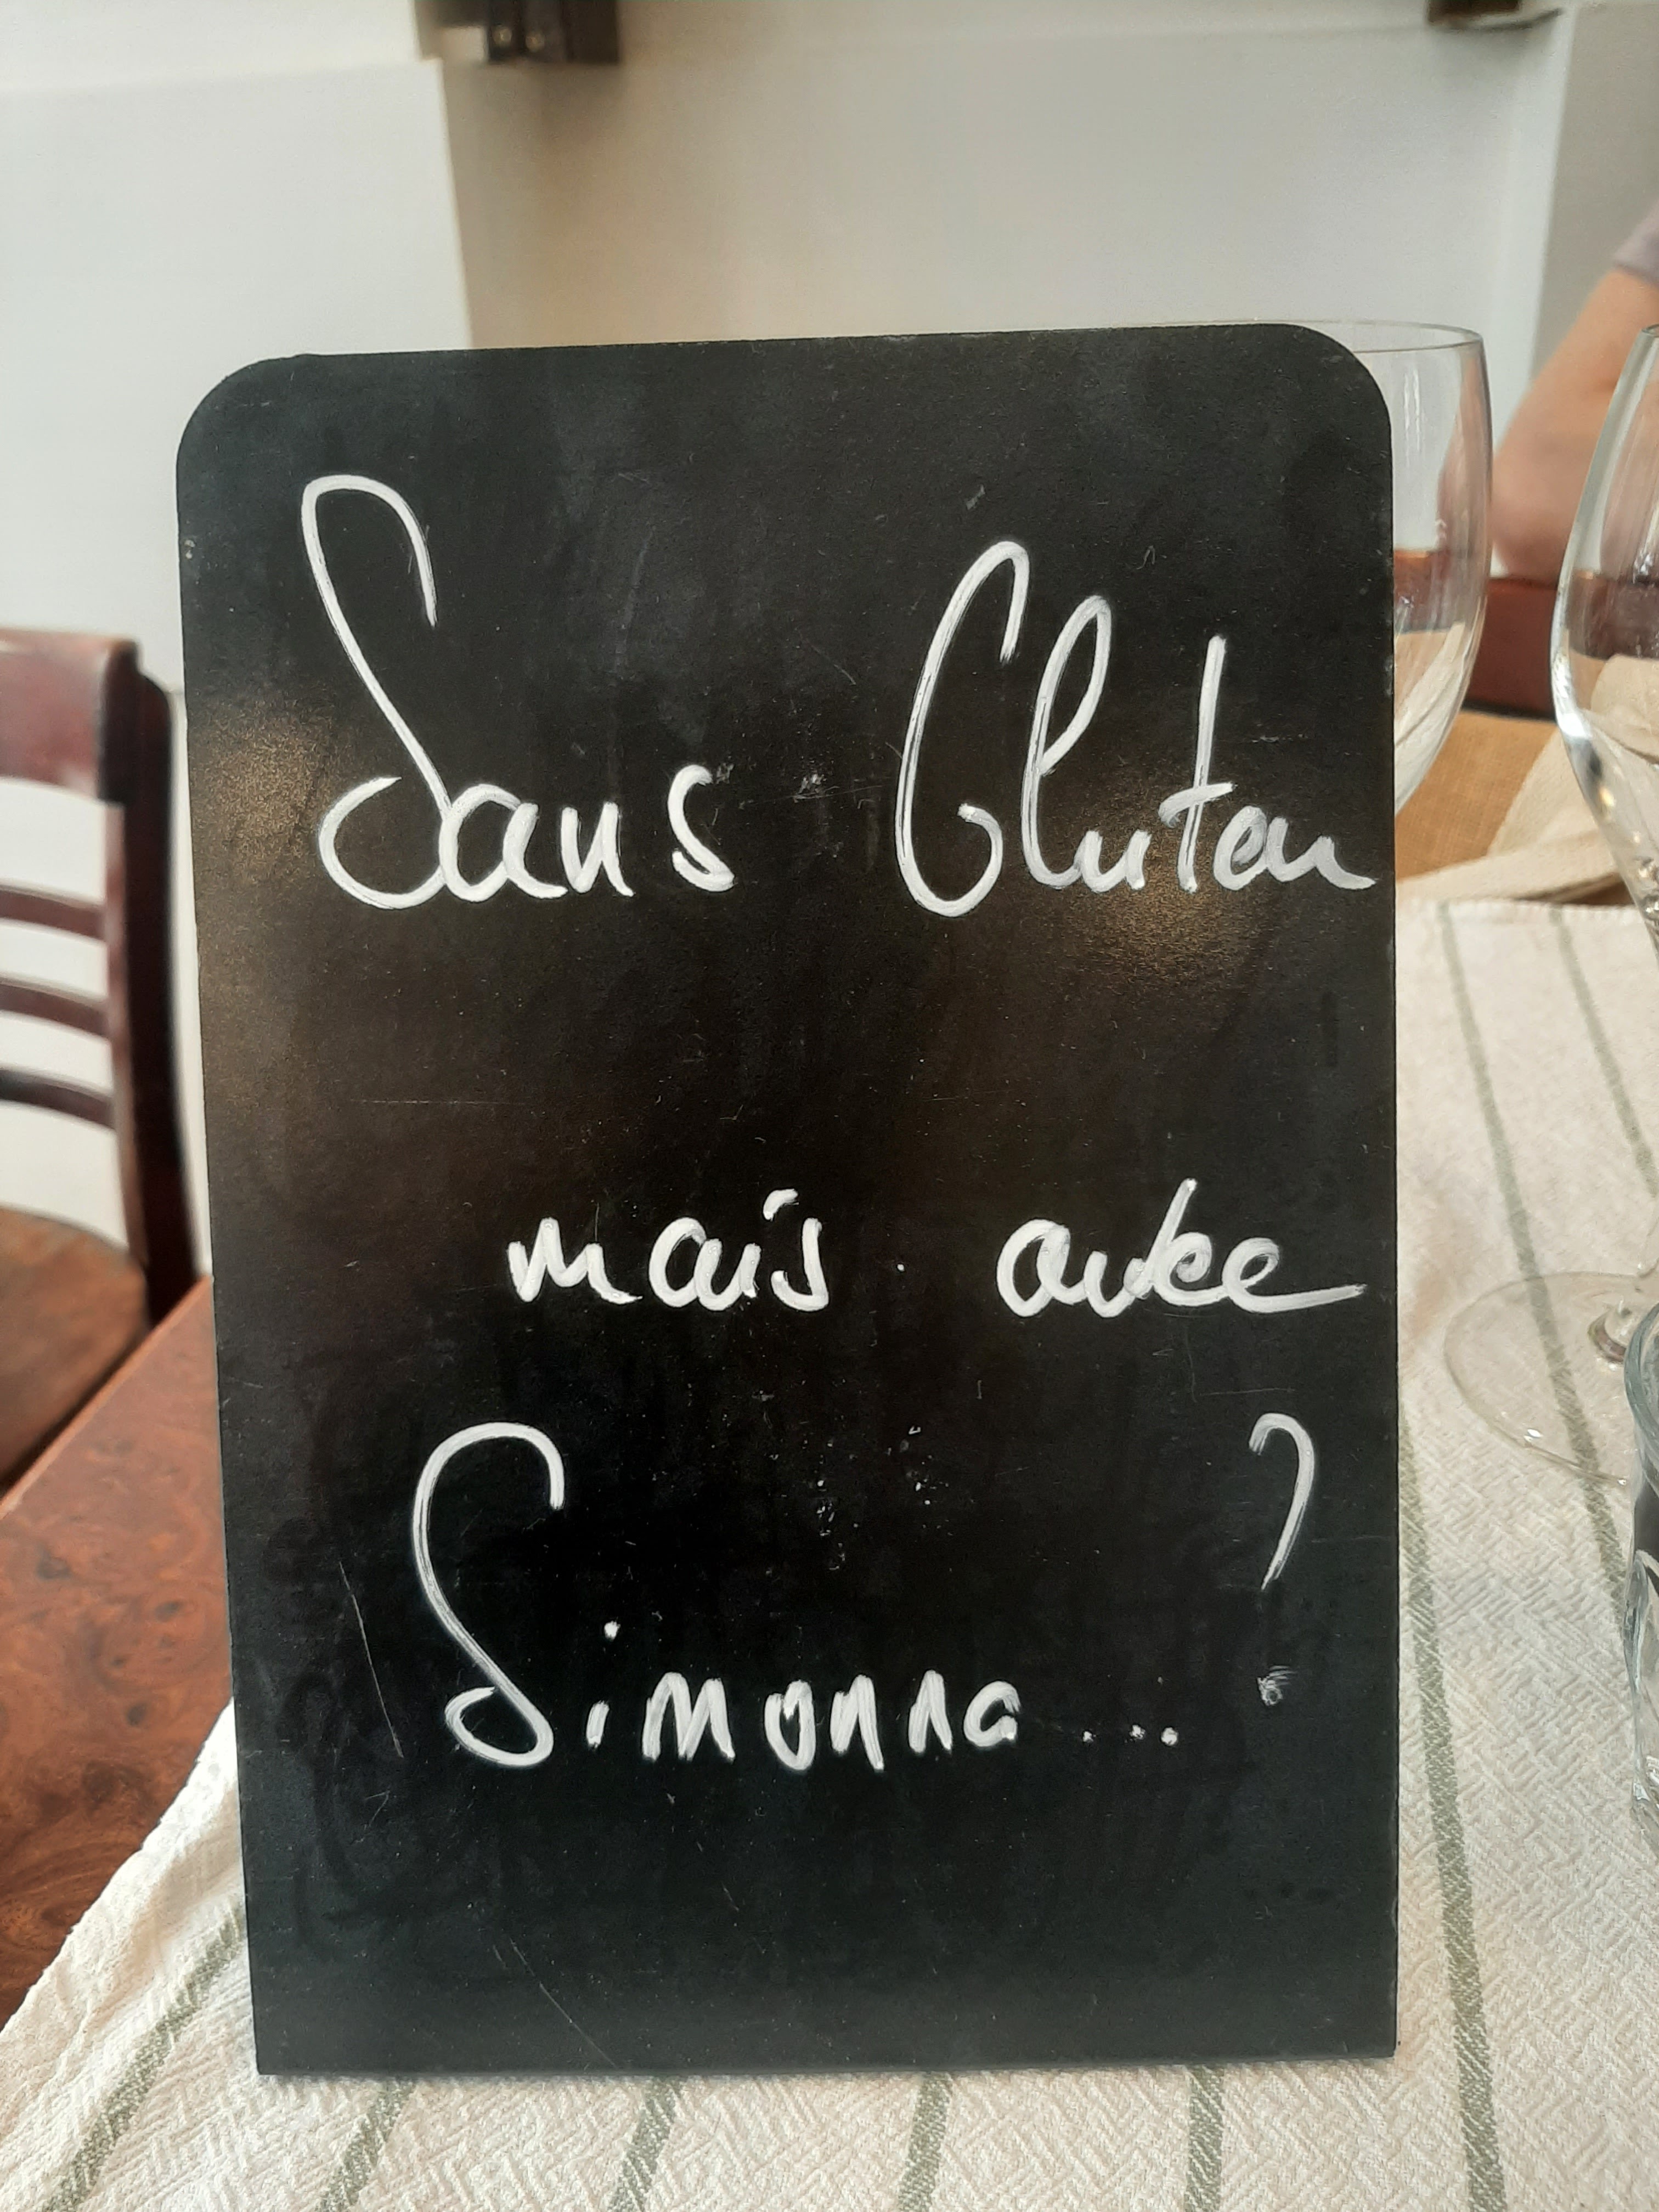 Sans Gluten
mais avec
Simonna...?